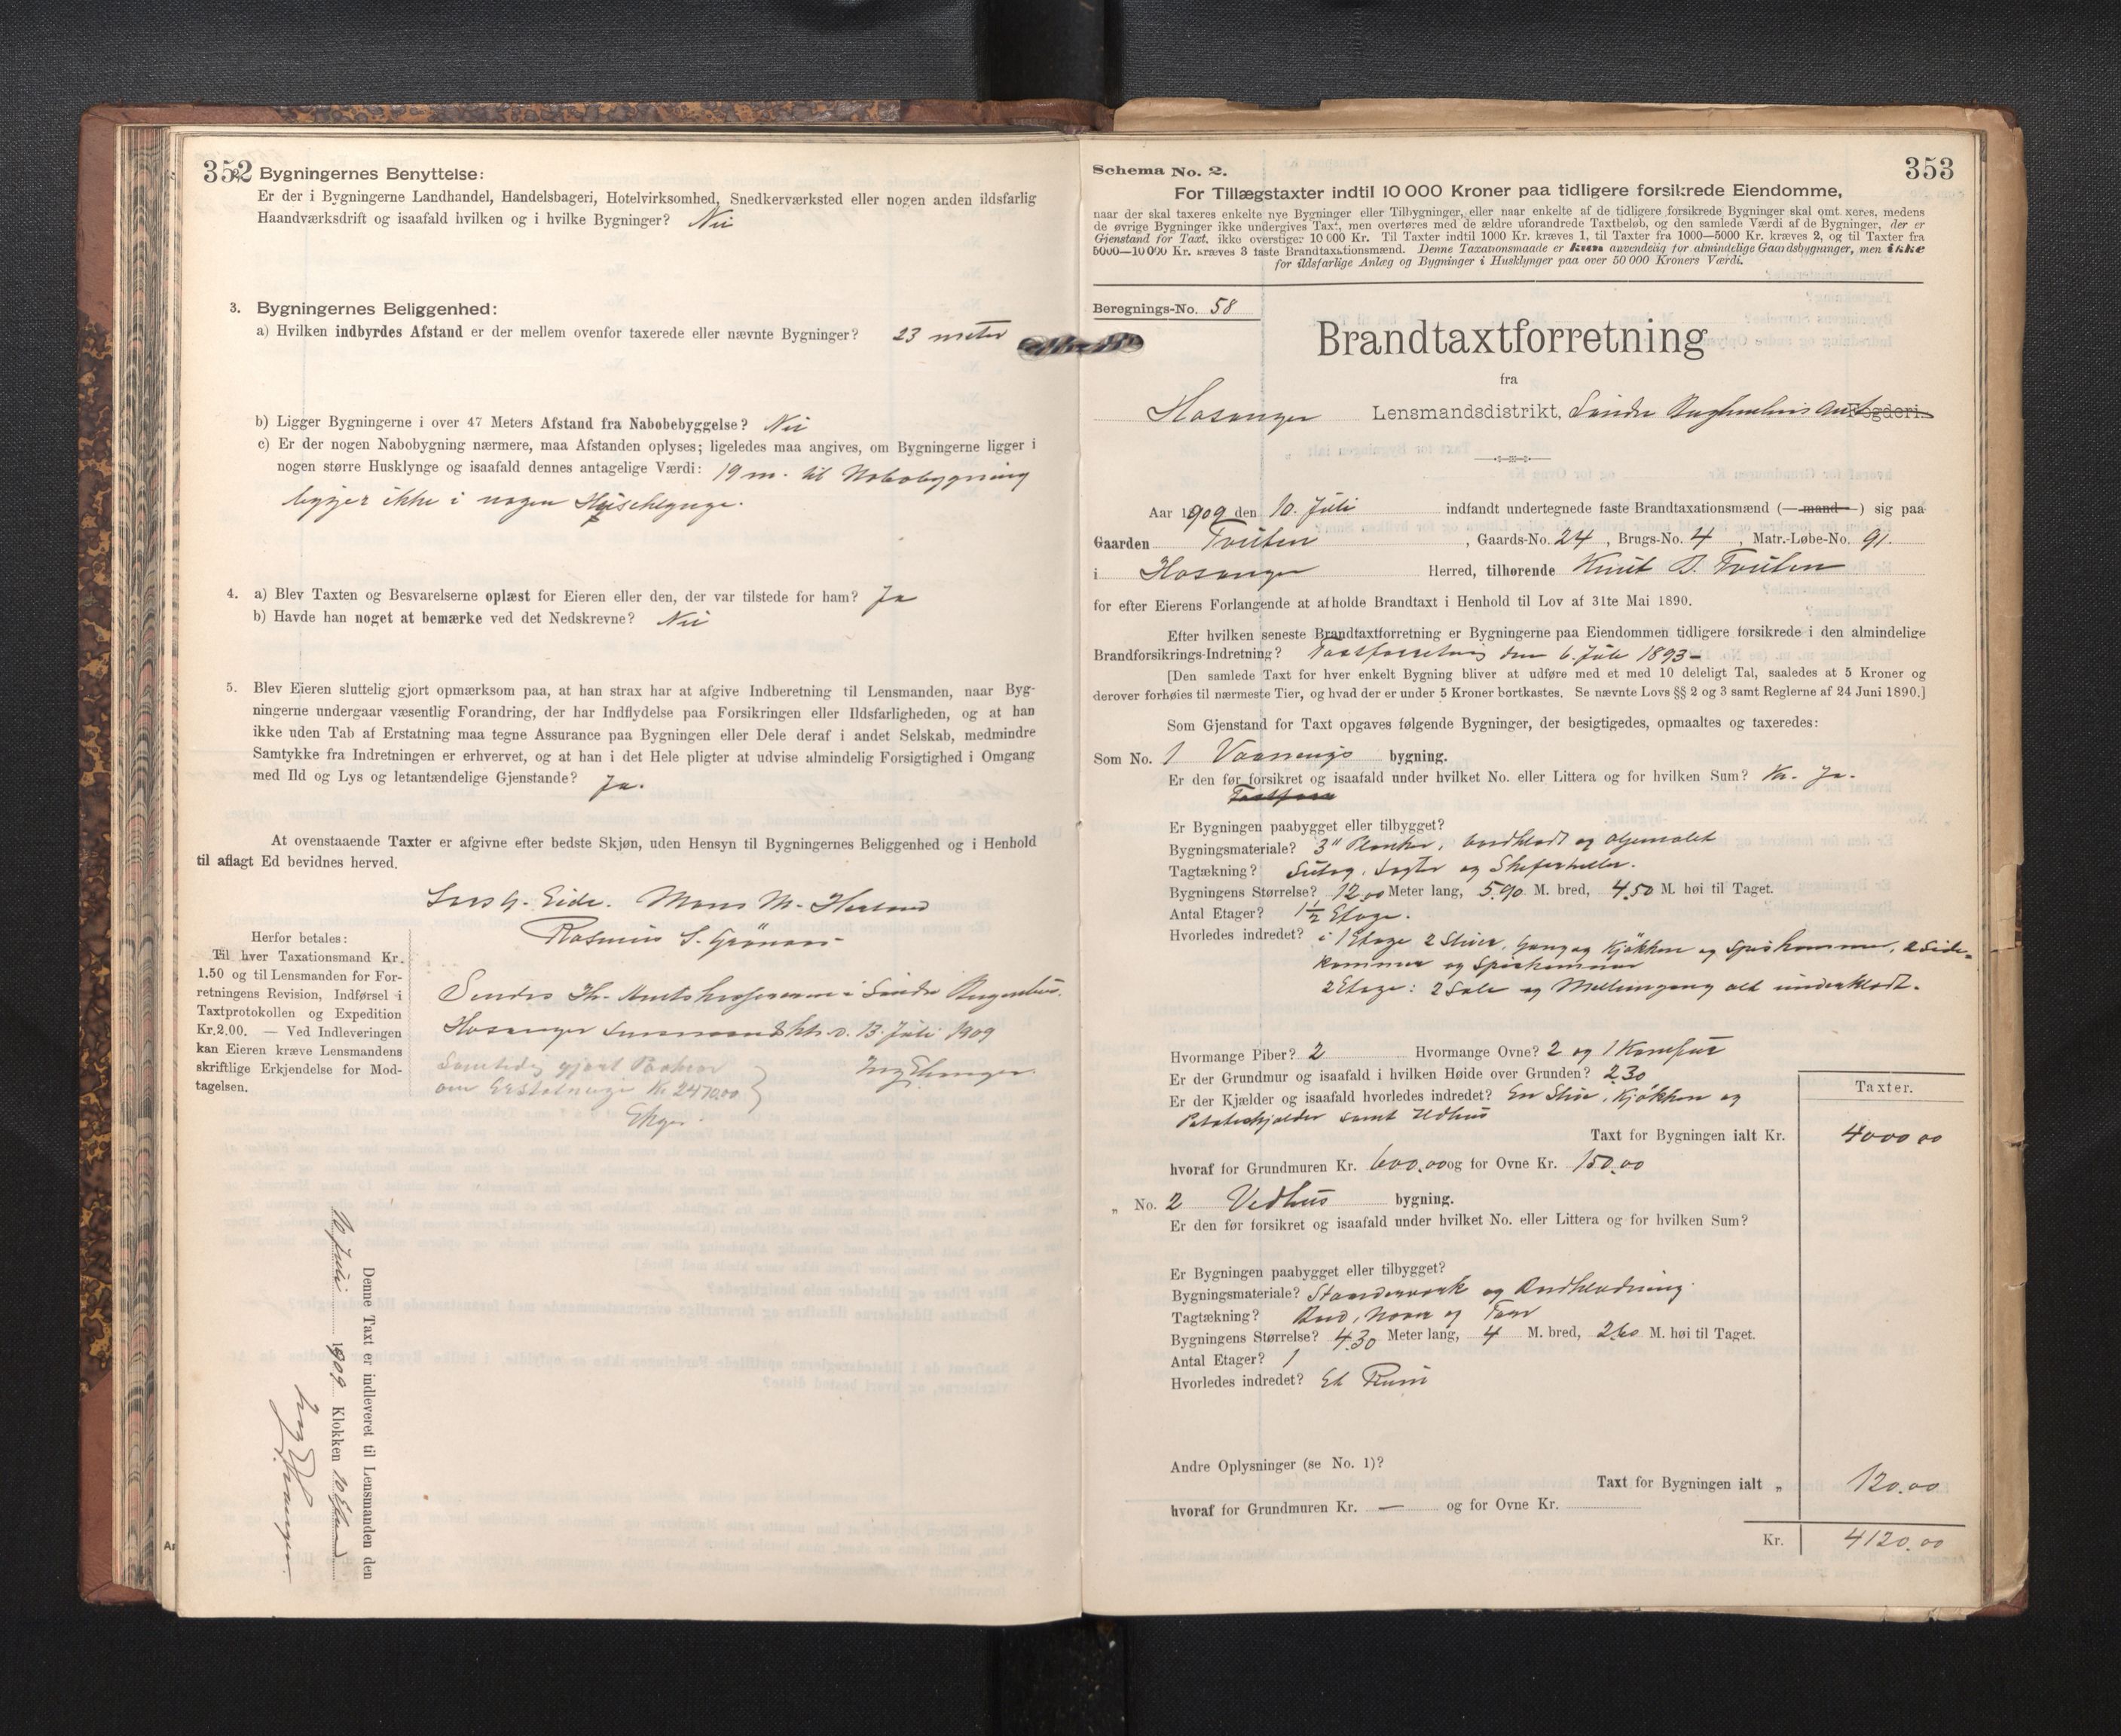 352
Bygningernes Benyttelse:
Er der i Bygningerne Landhandel, Handelsbageri, Hotelvirksomhed, Snedkerværksted eller nogen anden ildsfarlig
Haandværksdrift og isaafald hvilken og i hvilke Bygninger? Nei
3. Bygningernes Beliggenhed:
a) Hvilken indbyrdes Afstand er der mellem ovenfor taxerede eller nævnte Bygninger? 23 meter
b) Ligger Bygningerne i over 47 Meters Afstand fra Nabobebyggelse? Nei
c) Er der nogen Nabobygning nærmere, maa Afstanden oplyses; ligeledes maa angives, om Bygningerne ligger i
nogen større Husklynge og isaafald dennes antagelige Værdi: 19 m. til Nabobygning
ligger ikke i nogen Husklynge.
4. a) Blev Taxten og Besvarelserne oplæst for Eieren eller den, der var tilstede for ham? Ja
b) Havde han noget at bemærke ved det Nedskrevne? Nei
5. Blev Eieren sluttelig gjort opmærksom paa, at han strax har at afgive Indberetning til Lensmanden, naar Byg-
ningerne undergaar væsentlig Forandring, der har Indflydelse paa Forsikringen eller Ildsfarligheden, og at han
ikke uden Tab af Erstatning maa tegne Assurance paa Bygningen eller Dele deraf i andet Selskab, medmindre
Samtykke fra Indretningen er erhvervet, og at han i det Hele pligter at udvise almindelig Forsigtighed i Omgang
med Ild og Lys og letantændelige Gjenstande? Ja.
At ovenstaaende Taxter er afgivne efter bedste Skjøn, uden Hensyn til Bygningernes Beliggenhed og i Henhold
til aflagt Ed bevidnes herved.
Lars G. Eide. Mons M. Herland
Rasmus S.
Herfor betales:
Til hver Taxationsmand Kr.
1.50 og til Lensmanden for For-
retningens Revision, Indførsel i
Taxtprotokollen og Expedition
Kr. 2.00. — Ved Indleveringen
kan Eieren kræve Lensmandens
skriftlige Erkjendelse for Mod-
tagelsen.
Sendes Hr. Amtskassereren i Søndre Bergenhus.
Hosanger Lensmand 13. Juli 1909
Samtidig gjort
om Kr 2470.00
Denne Taxt er indleveret til Lensmanden den
Juli 1909 Klokken 10
353
Schema No. 2.
For Tillægstaxter indtil 10 000 Kroner paa tidligere forsikrede Eiendomme,
naar der skal taxeres enkelte nye Bygninger eller Tilbygninger, eller naar enkelte af de tidligere forsikrede Bygninger skal omtaxeres, medens
de øvrige Bygninger ikke undergives Taxt, men overføres med de ældre uforandrede Taxtbeløb, og den samlede Værdi af de Bygninger, der er
Gjenstand for Taxt, ikke overstiger 10 000 Kr. Til Taxter indtil 1000 Kr. kræves 1, til Taxter fra 1000—5000 Kr. kræves 2, og til Taxter fra
5000—10 000 Kr. kræves 3 faste Brandtaxationsmænd. Denne Taxationsmaade er kun anvendelig for almindelige Gaardsbygninger, men ikke
for ildsfarlige Anlæg og Bygninger i Husklynger paa over 50 000 Kroners Værdi.
Beregnings-No. 58
Brandtaxtforretning
fra
Hosanger Lensmandsdistrikt, Søndre Bergenhus Amt Fogderi.
Aar 1909 den 10. Juli indfandt undertegnede faste Brandtaxationsmænd (—mand—) sig paa
Gaarden Tveiten, Gaards-No. 24, Brugs-No. 4, Matr.-Løbe-No. 91.
i Hosanger Herred, tilhørende Knut B. Tveiten
for efter Eierens Forlangende at afholde Brandtaxt i Henhold til Lov af 31te Mai 1890.
Efter hvilken seneste Brandtaxtforretning er Bygningerne paa Eiendommen tidligere forsikrede i den almindelige
Brandforsikrings-Indretning? Taxtforretning den 6. Juli 1893-
[Den samlede Taxt for hver enkelt Bygning bliver at udføre med et med 10 deleligt Tal, saaledes at 5 Kroner og
derover forhøies til nærmeste Tier, og hvad der er under 5 Kroner bortkastes. Se nævnte Lovs §§ 2 og 3 samt Reglerne af 24 Juni 1890.]
Som Gjenstand for Taxt opgaves følgende Bygninger, der besigtigedes, opmaaltes og taxeredes:
Som No. 1 Vaanings bygning.
Er den før forsikret og isaafald under hvilket No. eller Littera og for hvilken Sum? Kr. Ja.
Er Bygningen paabygget eller tilbygget?
Bygningsmateriale? 3" Planker, bordklædt og oljemalet
Tagtækning? Sutag, Lægter og Skiferheller.
Bygningens Størrelse? 12.00 Meter lang, 5.90 M. bred, 4.50 M. høi til Taget.
Antal Etager? 1½ Etage.
Hvorledes indredet? i 1 Etage 2 Stuer, Gang og Kjøkken og Spiskammer, 2 Side-
kammer og Spiskammer
2 Etage: 2 Sale og Mellemgang alt underklædt.
Hvormange Piber? 2 Hvormange Ovne? 2 og 1 Komfur
Er der Grundmur og isaafald i hvilken Høide over Grunden? 2.30
Er der Kjælder og isaafald hvorledes indredet? En Stue, Kjøkken og
Potetkjælder samt Vedhus
Taxter.
Taxt for Bygningen ialt Kr. 4000.00
hvoraf for Grundmuren Kr. 600.00 og for Ovne Kr. 150.00
„ No. 2 Vedhus bygning.
Er den før forsikret og isaafald under hvilket No. eller Littera og for hvilken Sum?
Er Bygningen paabygget eller tilbygget?
Bygningsmateriale? Standerværk og Bordklædning
Tagtækning? Bord, Næver og Torv
Bygningens Størrelse? 4.30 Meter lang, 4 M. bred, 2.60 M. høi til Taget.
Antal Etager? 1
Hvorledes indredet? Et Rum
Andre Oplysninger (se No. 1)?
Taxt for Bygningen ialt „ 120.00
hvoraf for Grundmuren Kr. — og for Ovne Kr.
Kr. 4120.00